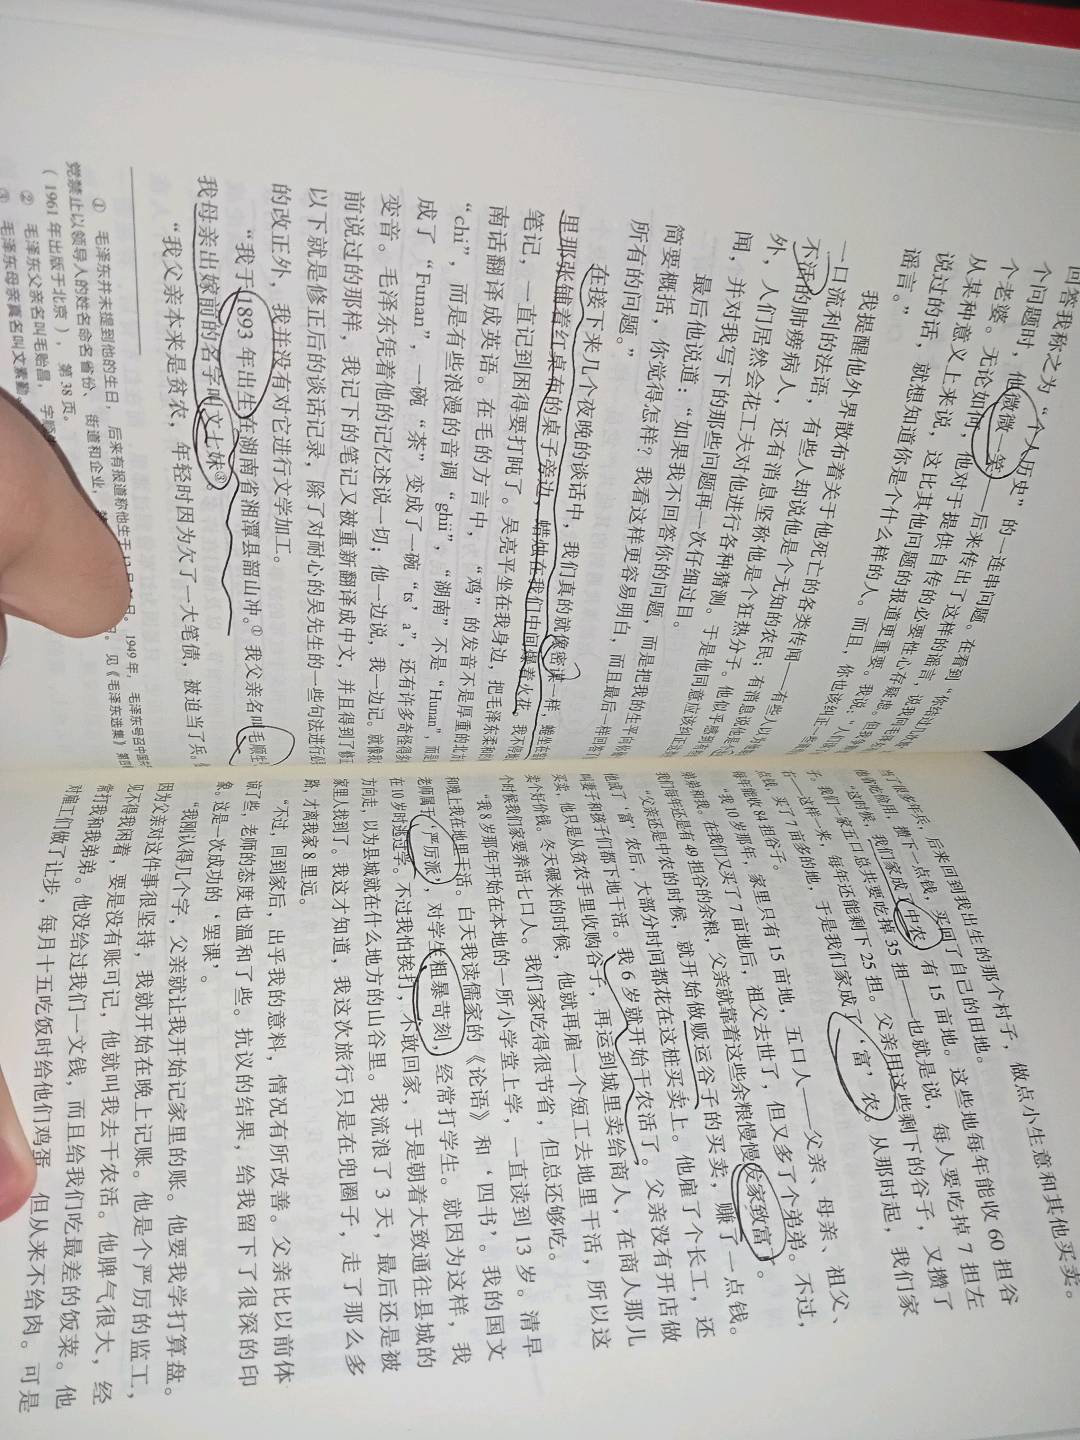 回答我称之为“个人历史”的一连串问题。在看到
个问题时，他微微一笑——后来传出了这样的谣言，说
个老婆。无论如何，他对于提供自传的必要性心存疑虑。但我
从某种意义上来说，这比其他问题的报道更重要。我说：“人们
说过的话，就想知道你是个什么样的人。而且，你也该纠正一些
谣言。”
我提醒他外界散布着关于他死亡的各类传闻——有些人以为
一口流利的法语，有些人却说他是个无知的农民；有消息说他是个
不活的肺痨病人，还有消息坚称他是个狂热分子。他似乎感到有
外，人们居然会花工夫对他进行各种猜测。于是他同意应该纠正
闻，并对我写下的那些问题再一次仔细过目。
最后他说道：“如果我不回答你的问题，而是把我的生平向你
简要概括，你觉得怎样？我看这样更容易明白，而且最后一样回答了
所有的问题。”
在接下来几个夜晚的谈话中，我们真的就像密谋一样，蜷坐在
里那张铺着红桌布的桌子旁边，蜡烛在我们中间爆着火花，我不停
笔记，一直记到困得要打盹了。吴亮平坐在我身边，把毛泽东柔和
南话翻译成英语。在毛的方言中，“鸡”的发音不是厚重的北方
“chi”，而是有些浪漫的音调“ghii”，“湖南”不是“Hunan”，而是
成了“Funan”，一碗“茶”变成了一碗“ts’a”，还有许多奇怪得多
变音。毛泽东凭着他的记忆述说一切；他一边说，我一边记。就像我
前说过的那样，我记下的笔记又被重新翻译成中文，并且得到了修正
以下就是修正后的谈话记录，除了对耐心的吴先生的一些句法进行必
的改正外，我并没有对它进行文学加工。
“我于1893年出生在湖南省湘潭县韶山冲。①我父亲名叫毛顺生
我母亲出嫁前的名字叫文七妹③。
“我父亲本来是贫农，年轻时因为欠了一大笔债，被迫当了兵。
① 毛泽东并未提到他的生日，后来有报道称他生于12月 日。1949年，毛泽东号召中国共
党禁止以领导人的姓名命名省份、街道和企业， 。见《毛泽东选集》第四
（1961年出版于北京），第38页。
② 毛泽东父亲名叫毛贻昌，字
③ 毛泽东母亲真名叫文素勤
当了很多年兵，后来回到我出生的那个村子，做点小生意和其他买卖。
他省吃俭用，攒下一点钱，买回了自己的田地。
“这时候，我们家成了‘中农’，有15亩地。这些地每年能收60担谷
子。我们一家五口总共要吃掉35担——也就是说，每人要吃掉7担左
右——这样一来，每年还能剩下25担。父亲用这些剩下的谷子，又攒了
点钱，买了7亩多的地，于是我们家成了‘富’农。从那时起，我们家
每年能收84担谷子。
“我10岁那年，家里只有15亩地，五口人——父亲、母亲、祖父、
弟弟和我。在我们又买了7亩地后，祖父去世了，但又多了个弟弟。不过，
我们每年还是有49担谷的余粮，父亲就靠着这些余粮慢慢发家致富了。
“父亲还是中农的时候，就开始做贩运谷子的买卖，赚了一点钱。
他成了‘富’农后，大部分时间都花在这桩买卖上。他雇了个长工，还
叫妻子和孩子们都下地干活。我6岁就开始干农活了。父亲没有开店做
买卖，他只是从贫农手里收购谷子，再运到城里卖给商人，在商人那儿
卖个好价钱。冬天碾米的时候，他就再雇一个短工去地里干活，所以这
个时候我们家要养活七口人。我们家吃得很节省，但总还够吃。
“我8岁那年开始在本地的一所小学堂上学，一直读到13岁。清早
和晚上我在地里干活。白天我读儒家的《论语》和‘四书’。我的国文
老师属于‘严厉派’，对学生粗暴苛刻，经常打学生。就因为这样，我
在10岁时逃过学。不过我怕挨打，不敢回家，于是朝着大致通往县城的
方向走，以为县城就在什么地方的山谷里。我流浪了3天，最后还是被
家里人找到了。我这才知道，我这次旅行只是在兜圈子，走了那么多
路，才离我家8里远。
“不过，回到家后，出乎我的意料，情况有所改善。父亲比以前体
谅了些，老师的态度也温和了些。抗议的结果，给我留下了很深的印
象。这是一次成功的‘罢课’。
“我刚认得几个字，父亲就让我开始记家里的账。他要我学打算盘。
因为父亲对这件事很坚持，我就开始在晚上记账。他是个严厉的监工，
见不得我闲着，要是没有账可记，他就叫我去干农活。他脾气很大，经
常打我和我弟弟。他没给过我们一文钱，而且给我们吃最差的饭菜。他
对雇工们做了让步，每月十五吃饭时给他们鸡蛋 但从来不给肉。可是